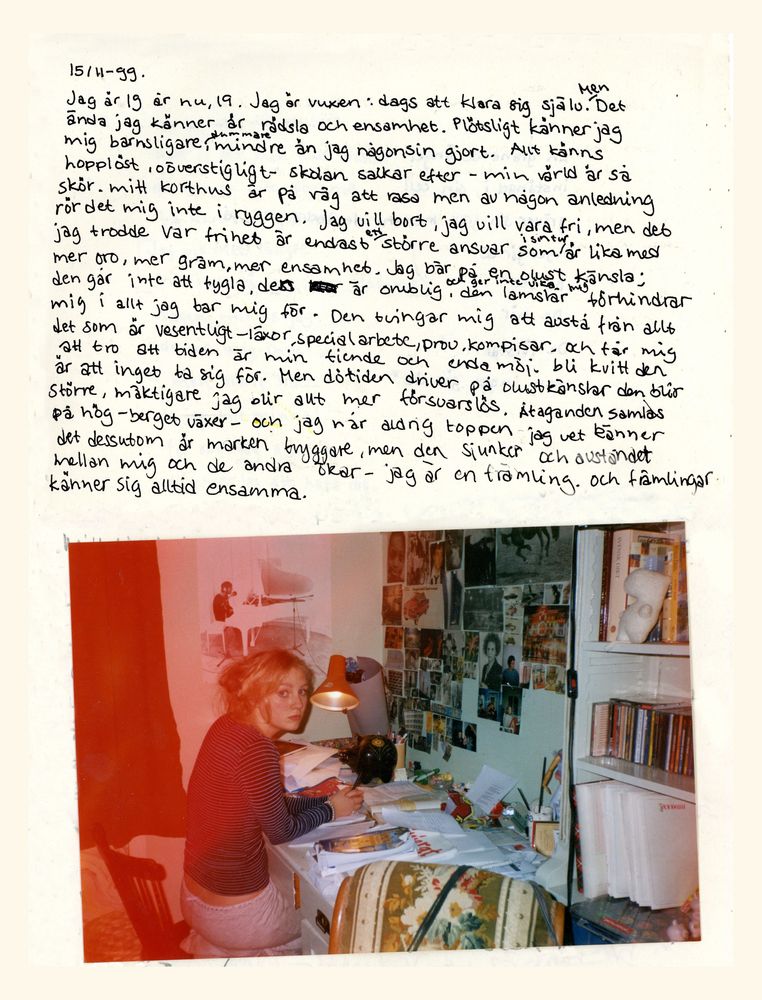 15/11-99.
Men
Jag är 19 år nu, 19. Jag är vuxen: dags att klara sig själv. Det
ända jag känner är rädsla och ensamhet. Plötsligt känner jag
dummare
mig barnsligare, mindre än jag någonsin gjort. Allt känns
hopplöst, oöverstigligt- skolan salkar efter - min värld är så
skör. mitt korthus är på väg att rasa men av någon anledning
rör det mig inte i ryggen. Jag vill bort, jag vill vara fri, men det
ett i sin tur,
jag trodde var frihet är endast större ansvar som är lika med
mer oro, mer gräm, mer ensamhet. Jag bär på en olust känsla;
och ger inte vika mig
den går inte att tygla, den är omblig, den lamslår förhindrar
mig i allt jag tar mig för. Den tvingar mig att avstå från allt
det som är vesentligt-läxor, specialarbete, prov, kompisar. och får mig
att tro att tiden är min fiende och enda möj. bli kvitt den
är att inget ta sig för. Men dötiden driver på olustkänslan den blir
större, mäktigare jag blir allt mer försvarslös. Åtaganden samlas
på hög-berget växer- och jag når aldrig toppen jag vet känner
det dessutom är marken tryggare, men den sjunker och avståndet
mellan mig och de andra ökar- jag är en främling. och främlingar
känner sig alltid ensamma.